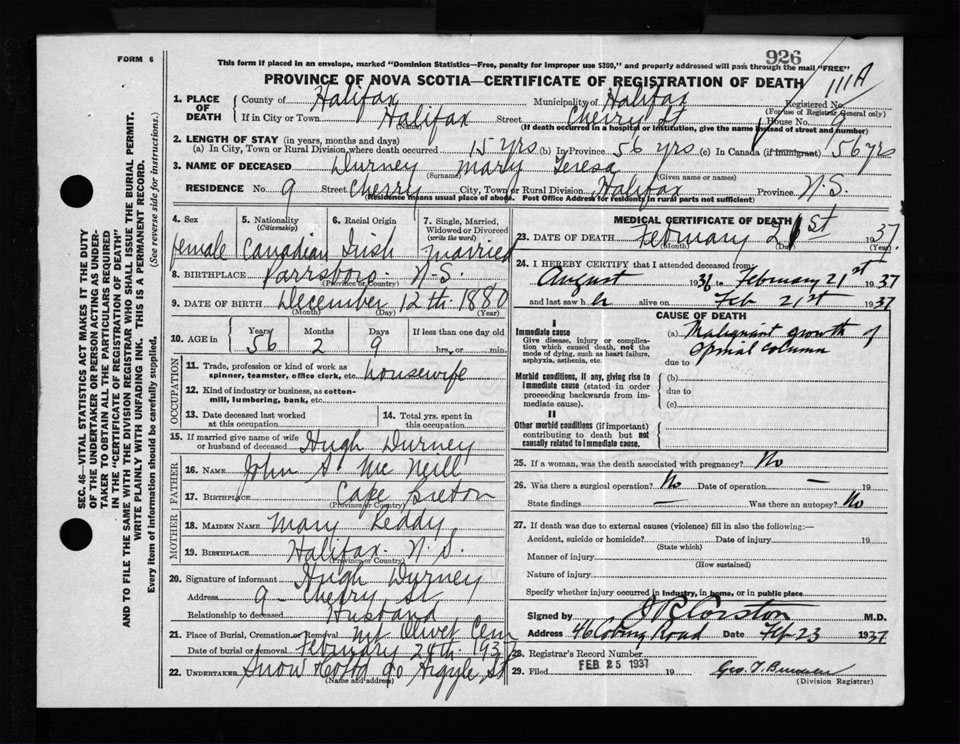 FORM 6
926
This form if placed in an envelope, marked "Dominion Statistics—Free, penalty for improper use $300," and properly addressed will pass through the mail "FREE"
PROVINCE OF NOVA SCOTIA—CERTIFICATE OF REGISTRATION OF DEATH
111A
1. PLACE OF DEATH County of Halifax Municipality of Halifax Registered No.
(For use of Registrar General only)
If in City or Town Halifax Street Cherry St House No. 9
(Name) (If death occurred in a hospital or institution, give the name instead of street and number)
2. LENGTH OF STAY (in years, months and days)
(a) In City, Town or Rural Division, where death occurred 15 yrs (b) In Province 56 yrs (c) In Canada (if immigrant) 56 yrs
3. NAME OF DECEASED Durney Mary Teresa
(Surname) (Given name or names)
RESIDENCE No. 9 Street Cherry City, Town or Rural Division Halifax Province N.S.
(Residence means usual place of abode. Post Office Address for residents in rural parts not sufficient)
4. Sex 5. Nationality (Citizenship) 6. Racial Origin 7. Single, Married, Widowed or Divorced (write the word)
female Canadian Irish married
8. BIRTHPLACE Parrsboro. N.S.
(Province or Country)
9. DATE OF BIRTH December 12th 1880
(Month) (Day) (Year)
10. AGE in Years Months Days If less than one day old
56 2 9 hrs. or min.
OCCUPATION
11. Trade, profession or kind of work as spinner, teamster, office clerk, etc. housewife
12. Kind of industry or business, as cotton-mill, lumbering, bank, etc.
13. Date deceased last worked at this occupation
14. Total yrs. spent in this occupation
15. If married give name of wife or husband of deceased Hugh Durney
FATHER
16. NAME John A Mc Neill
17. BIRTHPLACE Cape Breton
(Province or Country)
MOTHER
18. MAIDEN NAME Mary Leddy
19. BIRTHPLACE Halifax. N.S.
(Province or Country)
20. Signature of informant Hugh Durney
Address 9 - Cherry St
Relationship to deceased Husband
21. Place of Burial, Cremation or Removal Mt Olivet Cem
Date of burial or removal February 24th. 1937
22. UNDERTAKER Snow 90 Argyle St
(Name and address)
MEDICAL CERTIFICATE OF DEATH
23. DATE OF DEATH February 21st 1937
(Month) (Day) (Year)
24. I HEREBY CERTIFY that I attended deceased from
August 1936 to February 21st 1937
and last saw her alive on Feb 21st 1937
CAUSE OF DEATH
I
Immediate cause
Give disease, injury or complication which caused death, not the mode of dying, such as heart failure, asphyxia, asthenia, etc.
(a) Malignant growth of
Spinal column
due to
Morbid conditions, if any, giving rise to immediate cause (stated in order proceeding backwards from immediate cause).
(b)
due to
(c)
II
Other morbid conditions (if important) contributing to death but not causally related to immediate cause.
25. If a woman, was the death associated with pregnancy? No
26. Was there a surgical operation? No Date of operation — 19
State findings — Was there an autopsy? No
27. If death was due to external causes (violence) fill in also the following:—
Accident, suicide or homicide? Date of injury 19
(State which)
Manner of injury
(How sustained)
Nature of injury
Specify whether injury occurred in industry, in home, or in public place
Signed by J R Corston M.D.
Address 46 Coburg Road Date Feb 23 1937
28. Registrar's Record Number
29. Filed FEB 25 1937 19
(Division Registrar)
SEC. 46—VITAL STATISTICS ACT MAKES IT THE DUTY
OF THE UNDERTAKER OR PERSON ACTING AS UNDER-
TAKER TO OBTAIN ALL THE PARTICULARS REQUIRED
IN THE "CERTIFICATE OF REGISTRATION OF DEATH"
AND TO FILE THE SAME WITH THE DIVISION REGISTRAR WHO SHALL ISSUE THE BURIAL PERMIT.
WRITE PLAINLY WITH UNFADING INK. THIS IS A PERMANENT RECORD.
Every item of information should be carefully supplied. (See reverse side for instructions.)